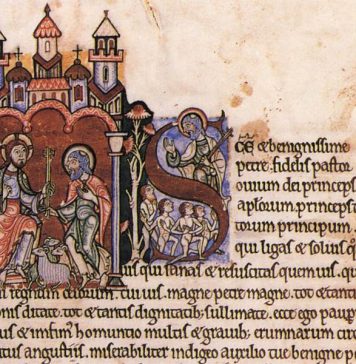 S
cẽ & benignissime
petre. fidelis pastor
ouium dei princeps
aplorum. princeps
torum principum
qui ligas & soluis q
us qui sanas & resuscitas quem uis. qu
tui uis. magne petre magne. tot & tant
ditate. tot & tantis dignitatib; sullimate. ecce ego paup
us & infimus homuntio multis & grauib; erumnarum
angustiis. miserabiliter indigeo auxilio tue benigne p